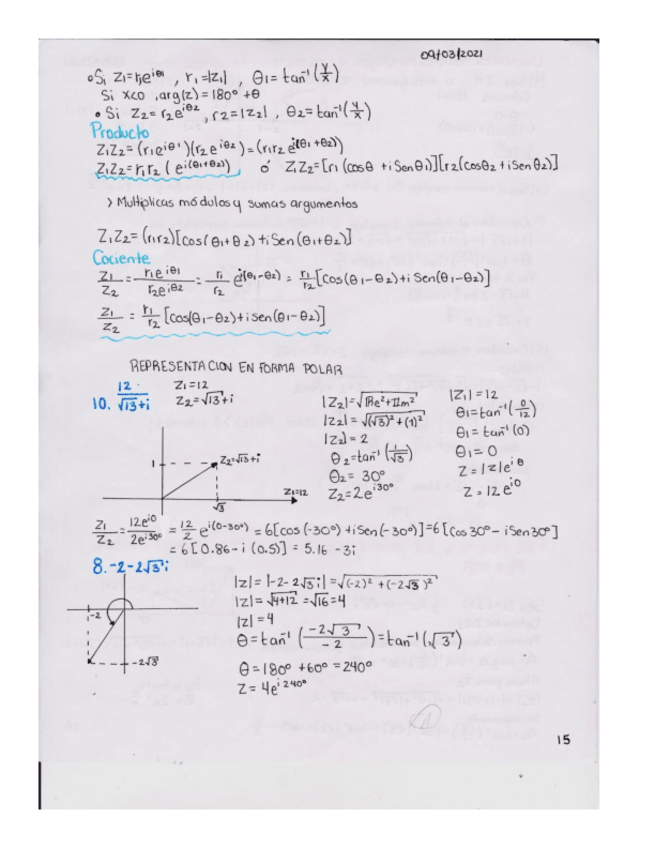 09/03/2021
• Si Z1=r1e^iθ1 , r1=|Z1| , θ1=tan⁻¹(y/x)
Si x<0 , arg(z)=180°+θ
• Si Z2=r2e^iθ2 , r2=|Z2| , θ2=tan⁻¹(y/x)
Producto
Z1Z2=(r1e^iθ1)(r2e^iθ2)=(r1r2e^i(θ1+θ2))
Z1Z2=r1r2(e^i(θ1+θ2)) ó Z1Z2=[r1(cosθ+iSenθ1)][r2(Cosθ2+iSenθ2)]
> Multiplicas módulos y sumas argumentos
Z1Z2=(r1r2)[Cos(θ1+θ2)+iSen(θ1+θ2)]
Cociente
Z1/Z2=r1e^iθ1/r2e^iθ2=r1/r2 e^i(θ1-θ2)=r1/r2[Cos(θ1-θ2)+iSen(θ1-θ2)]
Z1/Z2=r1/r2[Cos(θ1-θ2)+iSen(θ1-θ2)]
REPRESENTACION EN FORMA POLAR
10. 12/√13+i
Z1=12
Z2=√13+i
1
Z2=√13+i
√3
Z1=12
|Z2|=√Re²+Im²
|Z2|=√(√3)²+(1)²
|Z2|=2
θ2=tan⁻¹(1/√3)
θ2=30°
Z2=2e^i30°
|Z1|=12
θ1=tan⁻¹(0/12)
θ1=tan⁻¹(0)
θ1=0
Z=|Z|e^iθ
Z=12e^i0
Z1/Z2=12e^i0/2e^i30°=12/2 e^i(0-30°)=6[cos(-30°)+iSen(-30°)]=6[Cos30°-iSen30°]
=6[0.86-i(0.5)]=5.16-3i
8. -2-2√3i
-2
-2√3
|Z|=|-2-2√3i|=√(-2)²+(-2√3)²
|Z|=√4+12=√16=4
|Z|=4
θ=tan⁻¹(-2√3/-2)=tan⁻¹(√3)
θ=180°+60°=240°
Z=4e^i240°
15